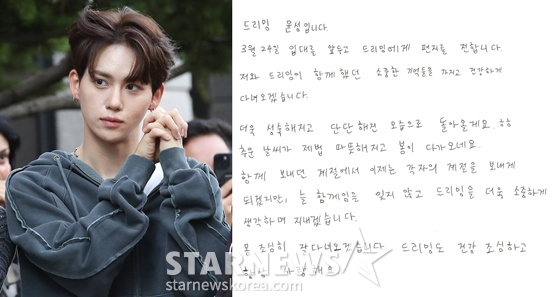 드리밍 윤성입니다.
3월 24일 입대를 앞두고 드리밍에게 편지를 전합니다.
저와 드리밍이 함께 했던 소중한 기억들을 가지고 건강하게
다녀오겠습니다.
더욱 성숙해지고 단단해진 모습으로 돌아올게요. ㅎㅎ
추운 날씨가 제법 따뜻해지고 봄이 다가오네요.
함께 보내던 계절에서 이제는 각자의 계절을 보내게
되겠지만, 늘 함께임을 잊지 않고 드리밍을 더욱 소중하게
생각하며 지내겠습니다.
몸 조심히 잘 다녀오겠습니다. 드리밍도 건강 조심하고
사랑해요
STARNEWS
starnewskorea.com